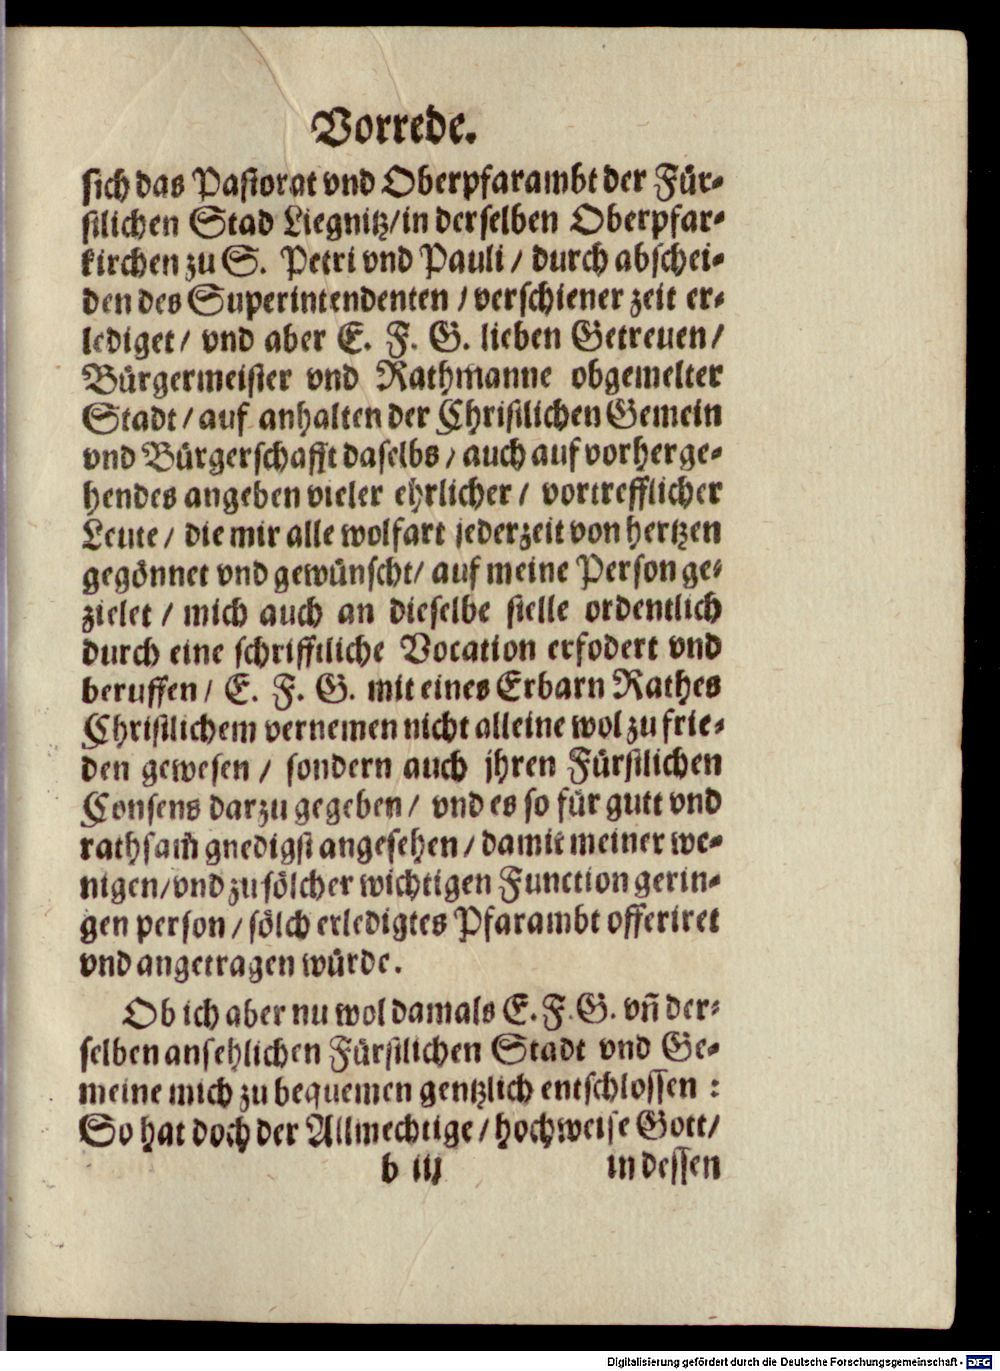 Vorrede.
sich das Pastorat vnd Oberpfarambt der Für-
stlichen Stad Liegnitz/in derselben Oberpfar-
kirchen zu S. Petri vnd Pauli / durch abschei-
den des Superintendenten / verschiener zeit er-
lediget/ vnd aber E. F. G. lieben Getreuen/
Bürgermeister vnd Rathmanne obgemelter
Stadt/auf anhalten der Christlichen Gemein
vnd Bürgerschafft daselbs/auch auf vorherge-
hendes angeben vieler ehrlicher/ vortrefflicher
Leute/ die mir alle wolfart jederzeit von hertzen
gegönnet vnd gewünscht/ auf meine Person ge-
zielet / mich auch an dieselbe stelle ordentlich
durch eine schrifftliche Vocation erfodert vnd
beruffen/ E. F. G. mit eines Erbarn Rathes
Christlichem vernemen nicht alleine wol zu frie-
den gewesen / sondern auch jhren Fürstlichen
Consens darzu gegeben/ vnd es so für gutt vnd
rathsam̃ gnedigst angesehen/damit meiner we-
nigen/vnd zu sölcher wichtigen Function gerin-
gen person/sölch erledigtes Pfarambt offeriret
vnd angetragen würde.
Ob ich aber nu wol damals E.F.G. vñ der-
selben ansehlichen Fürstlichen Stadt vnd Ge-
meine mich zu bequemen gentzlich entschlossen :
So hat doch der Allmechtige/hochweise Gott/
b iij in dessen
Digitalisierung gefördert durch die Deutsche Forschungsgemeinschaft - DFG